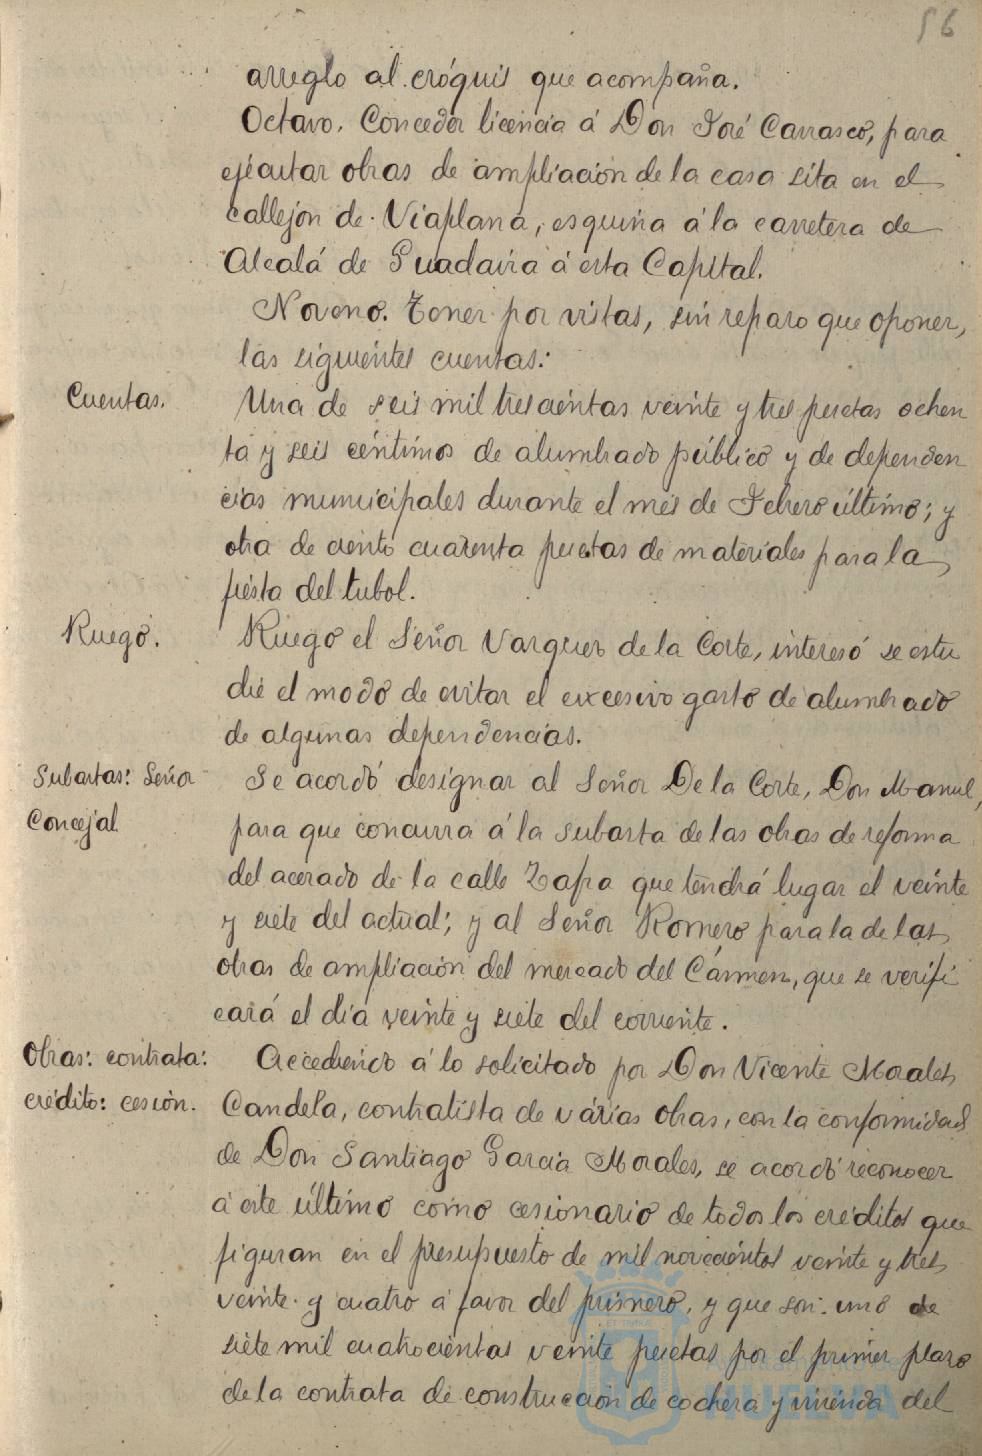 56
arreglo al cróquis que acompaña.
Octavo. Conceder licencia á Don José Carrasco, para
ejecutar obras de ampliación de la casa sita en el
callejón de Viaplana, esquina á la carretera de
Alcalá de Guadaira á esta Capital.
Noveno. Tener por vistas, sin reparo que oponer,
las siguientes cuentas:
Cuentas.
Una de seis mil trescientas veinte y tres pesetas ochen
ta y seis céntimos de alumbrado público y de dependen
cias municipales durante el mes de Febrero último; y
otra de ciento cuarenta pesetas de materiales para la
fiesta del tubol.
Ruego.
Ruego el Señor Vazquez de la Corte, interesó se estu
die el modo de evitar el excesivo gasto de alumbrado
de algunas dependencias.
Subastas: Señor
Concejal
Se acordó designar al Señor De la Corte, Don Manuel,
para que concurra á la subasta de las obras de reforma
del acerado de la calle Zafra que tendrá lugar el veinte
y siete del actual; y al Señor Romero para la de las
obras de ampliación del mercado del Cármen, que se verifi
cará el día veinte y siete del corriente.
Obras: contrata:
crédito: cesión.
Accediendo á lo solicitado por Don Vicente Morales
Candela, contratista de várias obras, con la conformidad
de Don Santiago García Morales, se acordó reconocer
á este último como cesionario de todos los créditos que
figuran en el presupuesto de mil novecientos veinte y tres
veinte y cuatro á favor del primero, y que son: uno de
siete mil cuatrocientas veinte pesetas por el primer plazo
de la contrata de construcción de cochera y vivienda del
Ayuntamiento de
HUELVA